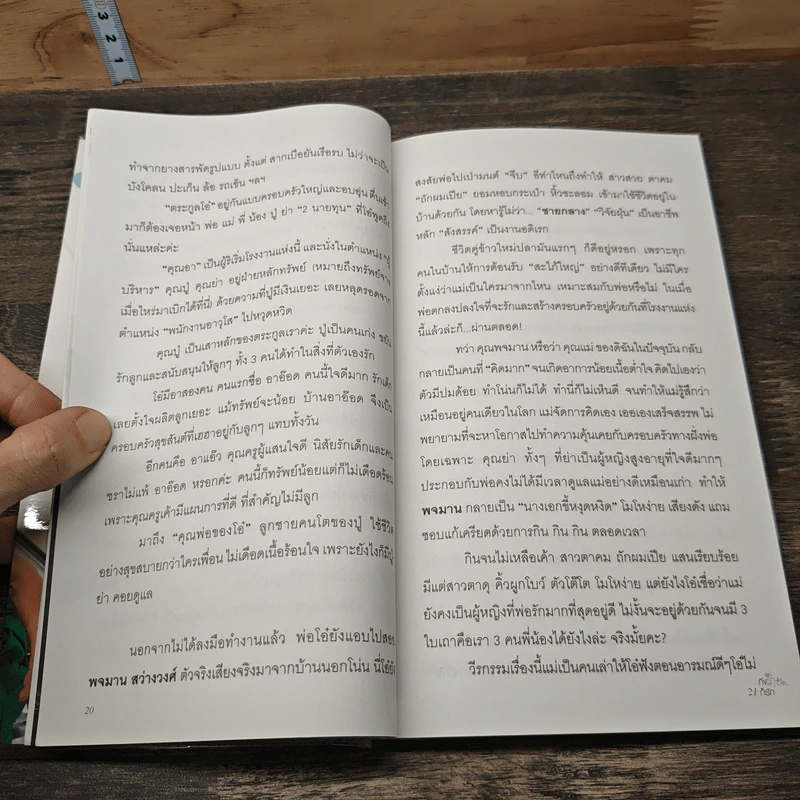 3
2
1
ทำจากยางสารพัดรูปแบบ ตั้งแต่ สากเบือยันเรือรบ ไม่ว่าจะเป็น
บังโคลน ปะเก็น ล้อ รถเข็น ฯลฯ
"ตระกูลโอ๋" อยู่กันแบบครอบครัวใหญ่และอบอุ่น ตื่นเช้า
มาก็ต้องเจอหน้า พ่อ แม่ พี่ น้อง ปู่ ย่า "2 นายทุน" ที่โอ๋พูดถึง
นั่นแหล่ะค่ะ
"คุณอา" เป็นผู้ริเริ่มโรงงานแห่งนี้ และนั่งในตำแหน่ง "ผู้
บริหาร" คุณปู่ คุณย่า อยู่ฝ่ายหลักทรัพย์ (หมายถึงทรัพย์จาง
เมื่อไหร่มาเบิกได้ที่นี่) ด้วยความที่ปู่มีเงินเยอะ เลยหลุดรอดจาก
ตำแหน่ง "พนักงานอาวุโส" ไปหวุดหวิด
คุณปู่ เป็นเสาหลักของตระกูลเราค่ะ ปู่เป็นคนเก่ง ขยัน
รักลูกและสนับสนุนให้ลูกๆ ทั้ง 3 คนได้ทำในสิ่งที่ตัวเองรัก
โอ๋มีอาสองคน คนแรกชื่อ อาอ๊อด คนนี้ใจดีมาก รักเด็ก
เลยตั้งใจผลิตลูกเยอะ แม้ทรัพย์จะน้อย บ้านอาอ๊อด จึงเป็น
ครอบครัวสุขสันต์ที่เฮฮาอยู่กับลูกๆ แทบทั้งวัน
อีกคนคือ อาแอ๊ว คุณครูผู้แสนใจดี นิสัยรักเด็กและคน
ชราไม่แพ้ อาอ๊อด หรอกค่ะ คนนี้ก็ทรัพย์น้อยแต่ก็ไม่เดือดร้อน
เพราะคุณครูเค้ามีแผนการที่ดี ที่สำคัญไม่มีลูก
มาถึง "คุณพ่อของโอ๋" ลูกชายคนโตของปู่ ใช้ชีวิต
อย่างสุขสบายกว่าใครเพื่อน ไม่เดือดเนื้อร้อนใจ เพราะยังไงก็มีปู่
ย่า คอยดูแล
นอกจากไม่ได้ลงมือทำงานแล้ว พ่อโอ๋ยังแอบไปสอย
พจมาน สว่างวงศ์ ตัวจริงเสียงจริงมาจากบ้านนอกโน่น นี่โอ๋ยัง
20
สงสัยพ่อไปเป่ามนต์ "จีบ" อีท่าไหนถึงทำให้ สาวสวย ตาคม
"ถักผมเปีย" ยอมหอบกระเป๋า หิ้วชะลอม เข้ามาใช้ชีวิตอยู่ใน
บ้านด้วยกัน โดยหารู้ไม่ว่า... "ชายกลาง" "วิจัยฝุ่น" เป็นอาชีพ
หลัก "สังสรรค์" เป็นงานอดิเรก
ชีวิตคู่ข้าวใหม่ปลามันแรกๆ ก็ดีอยู่หรอก เพราะทุก
คนในบ้านให้การต้อนรับ "สะใภ้ใหญ่" อย่างดีทีเดียว ไม่มีใคร
ตั้งแง่ว่าแม่เป็นใครมาจากไหน เหมาะสมกับพ่อหรือไม่ ในเมื่อ
พ่อตกลงปลงใจที่จะรักและสร้างครอบครัวอยู่ด้วยกันที่โรงงานแห่ง
นี้แล้วล่ะก็...ผ่านตลอด!
ทว่า คุณพจมาน หรือว่า คุณแม่ ของดิฉันในปัจจุบัน กลับ
กลายเป็นคนที่ "คิดมาก" จนเกิดอาการน้อยเนื้อต่ำใจ คิดไปเองว่า
ตัวมีปมด้อย ทำโน่นก็ไม่ได้ ทำนี่ก็ไม่เห็นดี จนทำให้แม่รู้สึกว่า
เหมือนอยู่คนเดียวในโลก แม่จัดการคิดเอง เออเองเสร็จสรรพ ไม่
พยายามที่จะหาโอกาสไปทำความคุ้นเคยกับครอบครัวทางฝั่งพ่อ
โดยเฉพาะ คุณย่า ทั้งๆ ที่ย่าเป็นผู้หญิงสูงอายุที่ใจดีมากๆ
ประกอบกับพ่อคงไม่ได้มีเวลาดูแลแม่อย่างดีเหมือนเก่า ทำให้
พจมาน กลายเป็น "นางเอกขี้หงุดหงิด" โมโหง่าย เสียงดัง แถม
ชอบแก้เครียดด้วยการกิน กิน กิน ตลอดเวลา
กินจนไม่เหลือเค้า สาวตาคม ถักผมเปีย แสนเรียบร้อย
มีแต่สาวตาดุ คิ้วผูกโบว์ ตัวโต๊โต โมโหง่าย แต่ยังไงโอ๋เชื่อว่าแม่
ยังคงเป็นผู้หญิงที่พ่อรักมากที่สุดอยู่ดี ไม่งั้นจะอยู่ด้วยกันจนมี 3
ใบเถาคือเรา 3 คนพี่น้องได้ยังไงล่ะ จริงมั้ยคะ?
วีรกรรมเรื่องนี้แม่เป็นคนเล่าให้โอ๋ฟังตอนอารมณ์ดีๆโอ๋ไม่
21